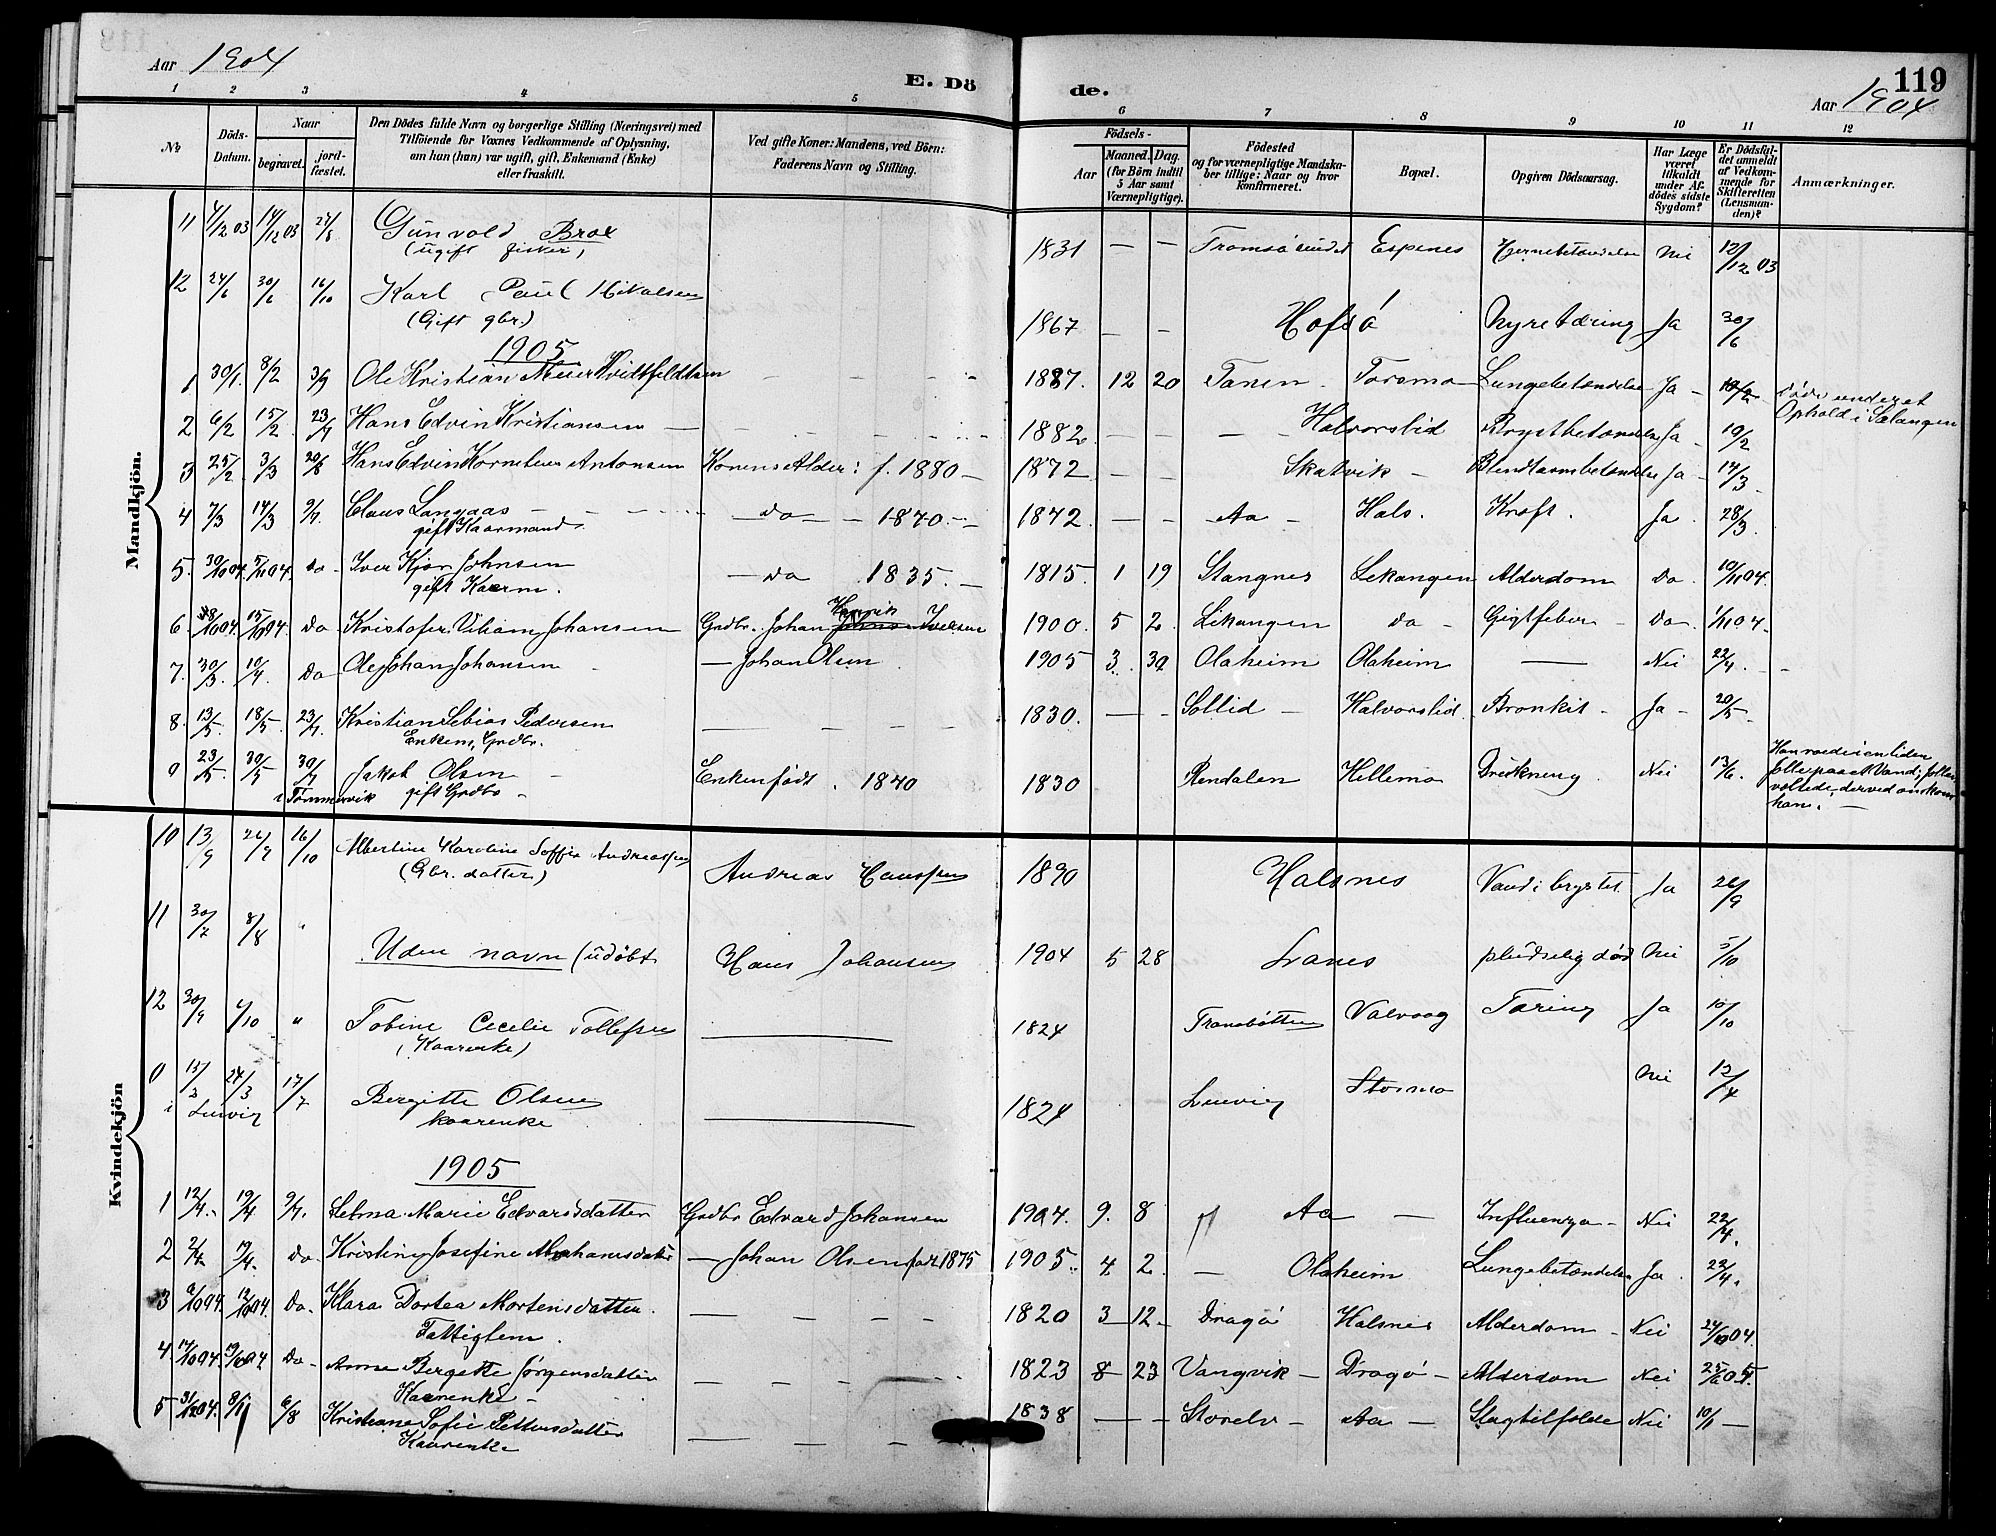 Aar 1904
E. Dö
de.
119
Aar 1904
1 2 3 4 5 6 7 8 9 10 11 12
No
Döds-Datum.
Naar
begravet.
jord-fæstet.
Den Dödes fulde Navn og borgerlige Stilling (Næringsvei) med
Tilföiende for Voxnes Vedkommende af Oplysning,
om han (hun) var ugift, gift, Enkemand (Enke)
eller fraskilt.
Ved gifte Koner: Mandens, ved Börn:
Faderens Navn og Stilling.
Födsels-
Aar
Maaned. Dag.
(for Börn indtil
5 Aar samt
Værnepligtige).
Födested
og for værnepligtige Mandska-
ber tillige: Naar og hvor
konfirmeret.
Bopæl.
Opgiven Dödsaarsag.
Har Læge
været
tilkaldt
under Af-
dödes sidste
Sygdom?
Er Dödsfal-
det anmeldt
af Vedkom-
mende for
Skifteretten
(Lensman-
den)?
Anmærkninger.
Mandkjön.
11 4/12 03 14/12 03 24/8 Gunvald Brox 1831 — — Tromsösundet Espenes Hjernebetændelse Nei 12/12 03
(ugift fisker)
12 24/6 30/6 16/10 Karl Paul Nikolaisen 1867 — — Hofsö Nyretæring Ja 30/6
(Gift gbr.)
1905
1 30/1. 8/2 3/9 Ole Kristian Meier Hvidtfeldtsen — — — 1887. 12 20 Tanen. Torsmo Lungebetændelse Ja — 10/2 Död under et
Ophold i Salangen
2 6/2 15/2 23/7 Hans Edvin Kristiansen — — — 1882. — — Halvorslid Brystbetændelse Ja 19/2
3 25/2 3/3 20/8 Hans Edvin Kornelius Antonsen Konens Alder: f. 1880 — 1872 — — Skatvik — Blindtarmbetændelse Ja — 14/3
4 7/3 14/3 9/7. Claus Langaas — — do — — 1840. — 1842. — — Aa — Hals. Kræft. Ja. 28/3
gift Kaarmand.
5. 30/10 04. 5/11 04. do — Iver Kjør Johnsen — do 1835. — 1815. 1 19 Stangnes Lekangen Alderdom do. 10/11 04.
gift Kaarm.
6 8/10 04. 15/10 04. do Kristofer Viliam Johansen Grdbr. Johan Henrik Iversen 1900. 5 2. Lekangen do — Gigtfeber — do. 1/11 04.
7. 30/3 10/4. do Ole Johan Johansen — Johan Olsen 1905 3. 30 Olaheim Olaheim — Nei 22/4. —
8. 13/5. 18/5. 23/7. Kristian Sebias Pedersen — — — 1830. — — Sollid — Halvorslid. Bronkit — Ja — 20/5 —
Enkem., Grdbr.
9 23/5. 30/5 30/7 Jakob Olsen — Enken født. 1840 1830 Rendalen Hellemo Drukning. Nei 13/6. Han roede i en liden
i Tømmervik gift Grdbr —
jolle paa et Vand; jollen
væltede, derved omkom
han. —
Kvindekjön
10 13/9 26/9 16/10 Albertine Karoline Soffie Andreassen Andreas Hanssen 1890 Halsnes Vand i brystet Ja 26/9
(Gbr. datter)
11 30/7 8/8 " Uden navn (udøbt Hans Johansen 1904 5 28 Lanes pludselig død Nei 5/10
12 30/9 4/10 " Tobine Cecelie Tollefsen — 1824 Tranebøtten Valvaag Tæring Ja 10/10
(Kaarenke)
0 15/3 24/3 17/7 Bergitte Olsen — 1824 Lenvig Stormo Nei 12/4
i Lenvig kaarenke
1905
1 12/4. 19/4 9/7. Selma Marie Edvarsdatter Grdbr Edvard Johansen 1904. 9. 8 Aa — Influenza — Nei 22/4.
2 2/4 19/4. do Kristine Josefine Abrahamsdatter — Johan Olsen født 1875 1905. 4 2. — Olaheim Lungebetændelse Ja. 22/4.
3 9/10 04. 12/10 04. do. Klara Dortea Mortensdatter. — — — 1820 3 12. Dragö Halsnes Alderdom — Nei 24/10 04.
Fattiglem.
4 14/10 04. 19/10 04 do — Anne Bergette Jørgensdatter — — — 1823 8 23 Vangvik — Dragö — Alderdom Nei
Kaarenke —
5 31/12 04. 8/1 6/8 Kristiane Sofie Pettersdatter — — — 1838 — — Storelv — Aa — Slagtilfælde Nei 10/1 —
Kaarenke